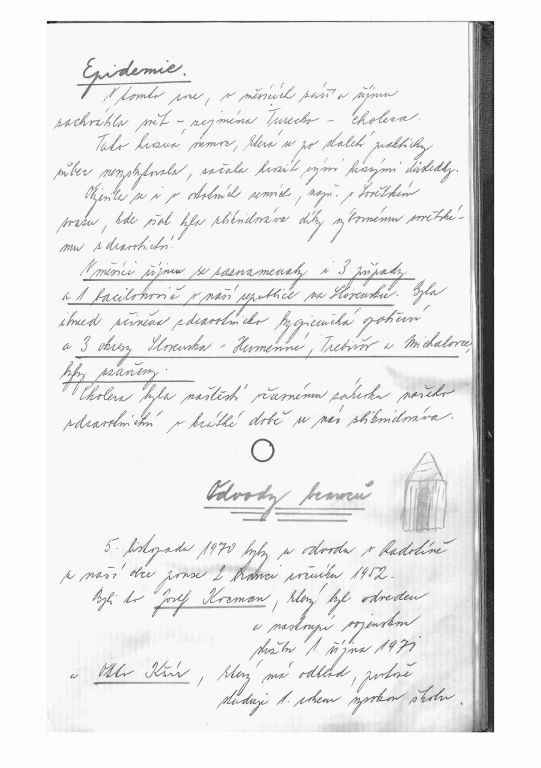 Epidemie.
V tomto roce, v měsících září a říjnu
zachvátila svět - zejména Turecko - cholera.
Tato hrozná nemoc, která se po dvacet prakticky
vůbec nevyskytovala, začala hrozit svými hroznými důsledky.
Objevila se i v okolních zemích, např. v Sovětském
svazu, kde však byla zlikvidována díky výbornému sovětské-
mu zdravotnictví.
V měsíci říjnu se zaznamenaly i 3 případy
a 1 bacilonosič v naší republice na Slovensku. Byla
ihned učiněna zdravotnicko hygienická opatření
a 3 okresy Slovenska - Humenné, Trebišov a Michalovce,
byly uzavřeny.
Cholera byla naštěstí včasnému zákroku našeho
zdravotnictví v krátké době u nás zlikvidována.
Odvody branců
5. listopadu 1970 byly u odvodu v Radotíně
z naší obce pouze 2 branci ročníku 1952.
Byli to Josef Kocman, který byl odveden
a nastoupí vojenskou
službu 1. října 1971
a Otto Kšír, který má odklad, protože
studuje 1. rokem vysokou školu.